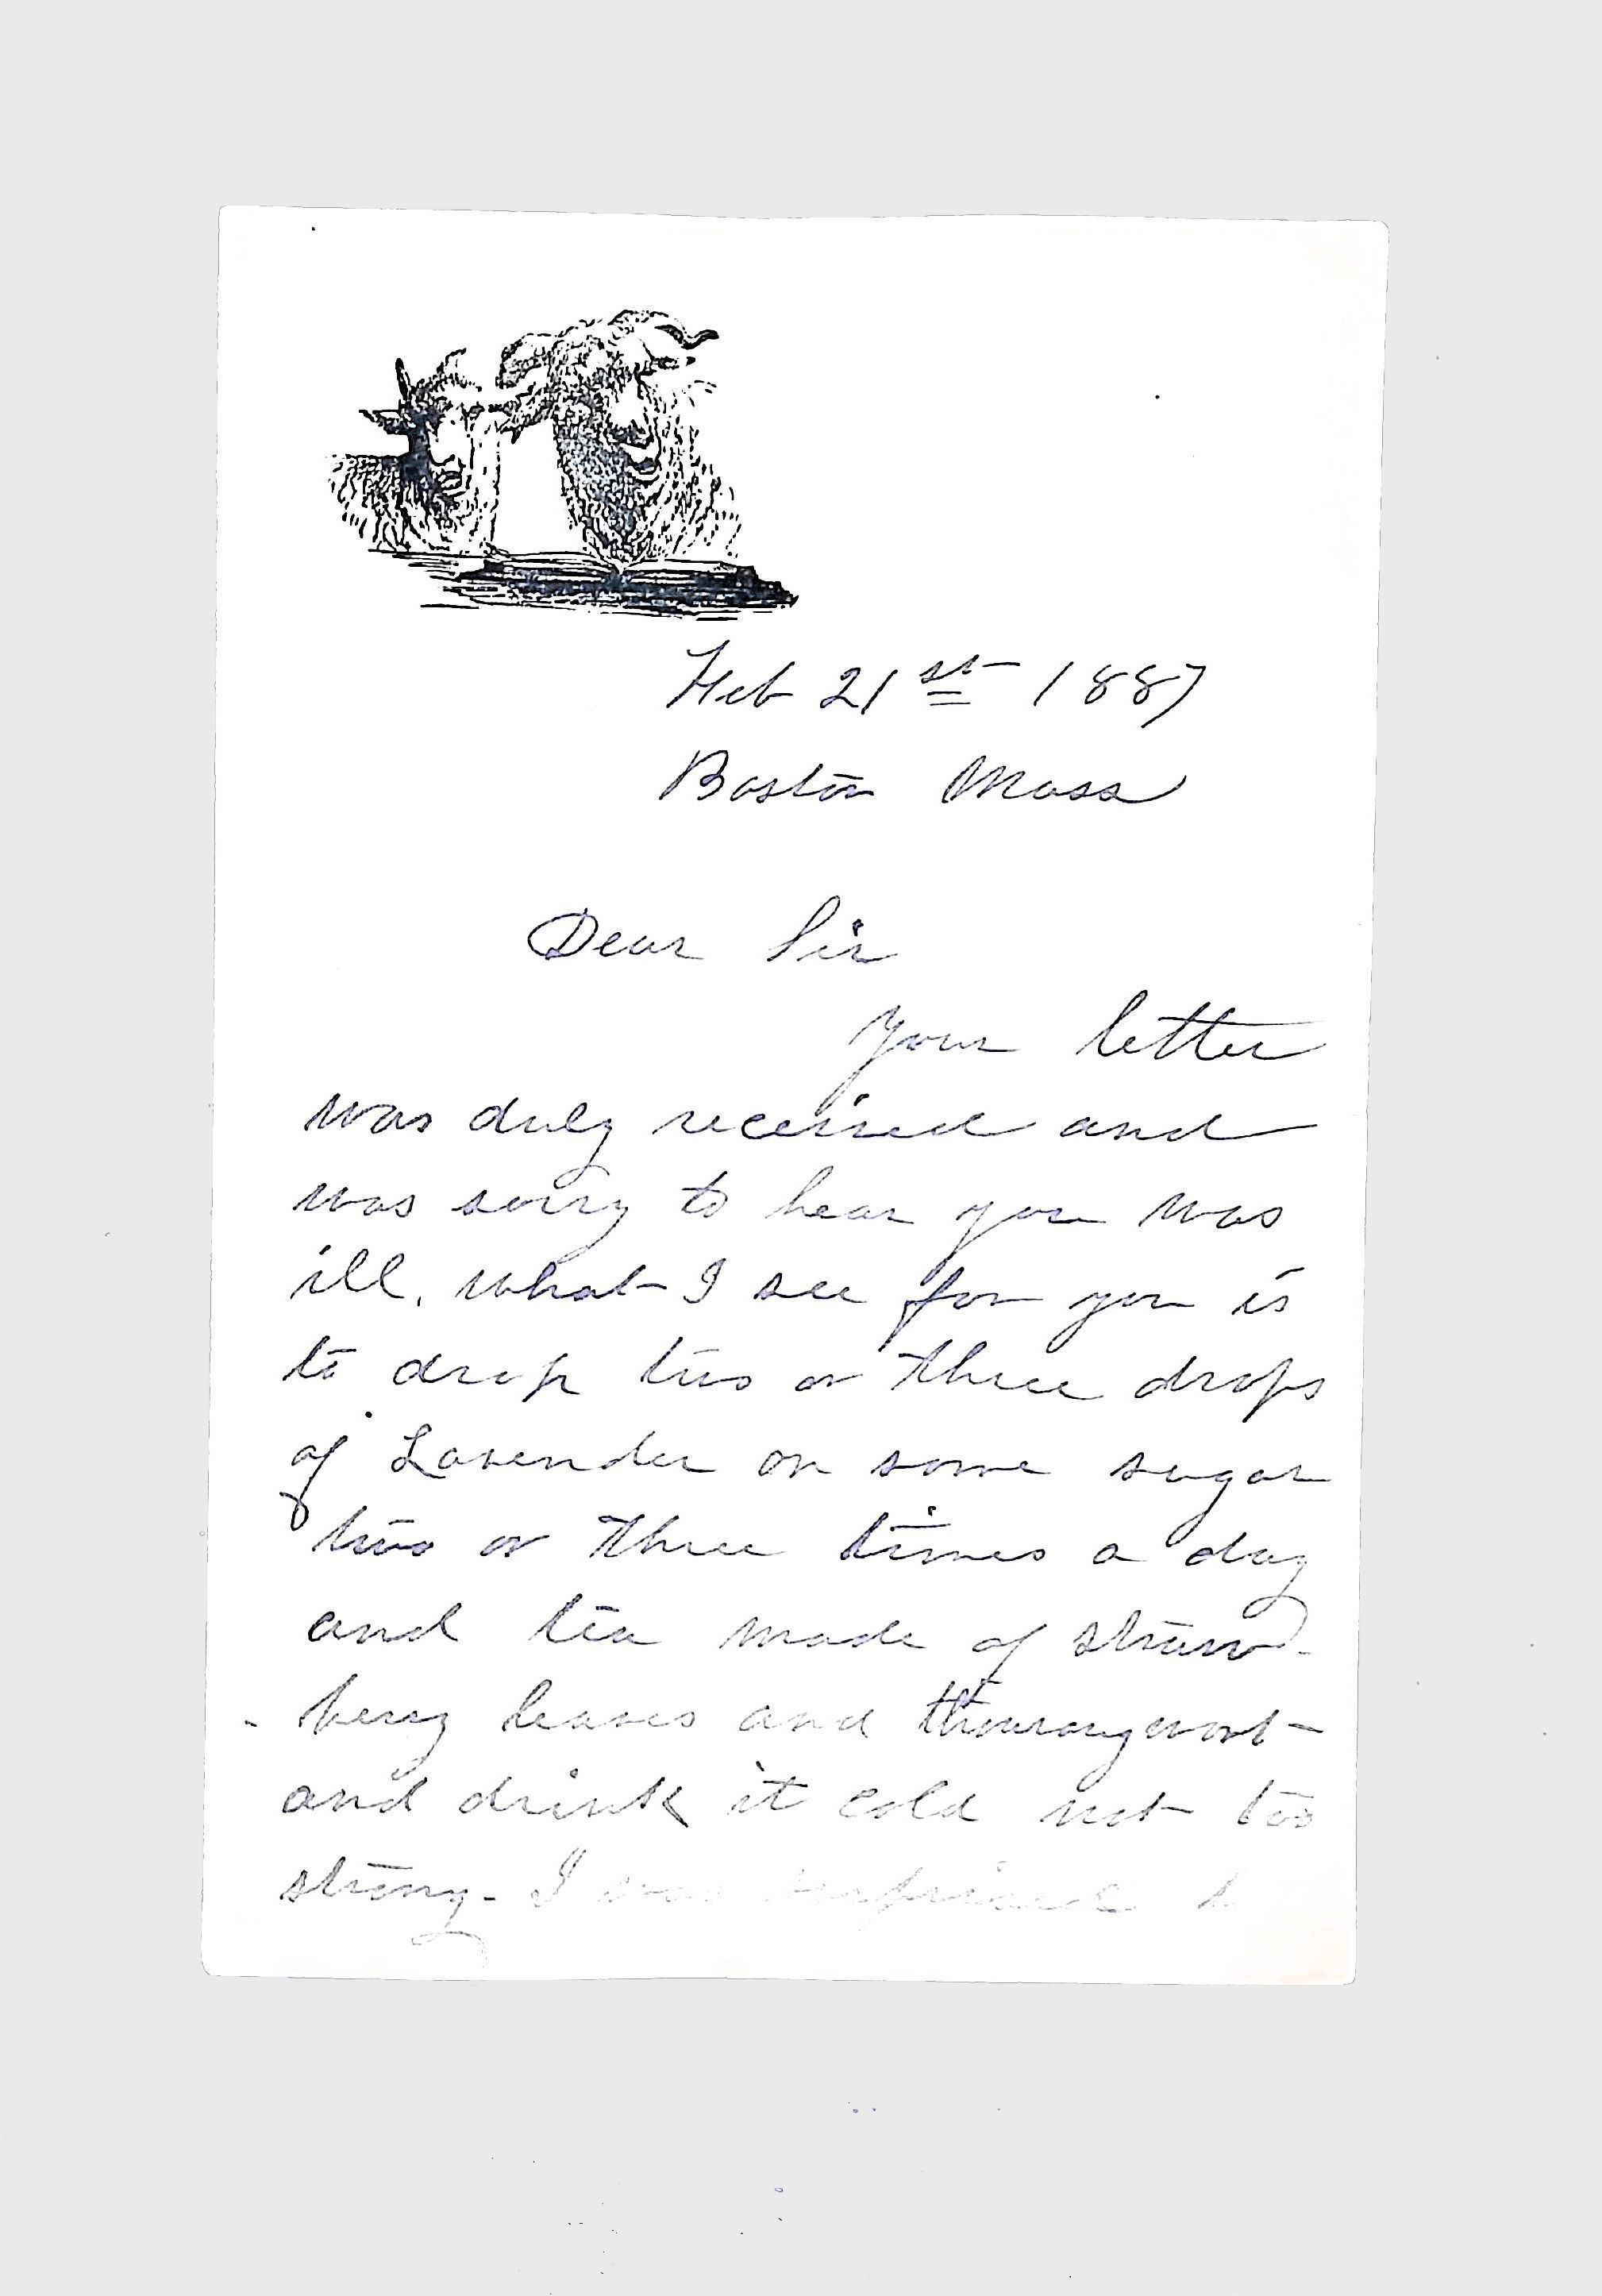 Feb 21st 1887
Boston Mass
Dear Sir
Your letter
was duly received and
was sorry to hear you was
ill. what I see for you is
to drop two or three drops
of Lavender on some sugar
two or three times a day
and tea made of straw-
berry leaves and
and drink it cold not too
strong. I was surprised